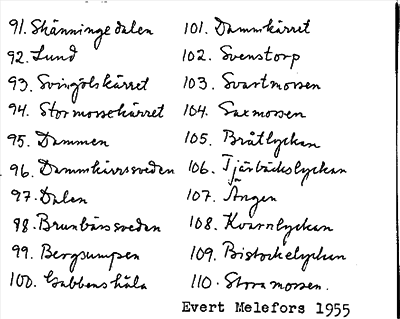 91. Skänningedalen
92. Lund
93. Svingölskärret
94. Stormossekärret
95. Dammen
96. Dammkärrsveden
97. Dalen
98. Brunbärssveden
99. Bergsumpen
100. Gubbens håla
101. Dammkärret
102. Svenstorp
103. Svartmossen
104. Saxmossen
105. Bråtlyckan
106. Tjärbäckslyckan
107. Ängen
108. Kvarnlyckan
109. Bistockelyckan
110. Stora mossen.
Evert Melefors 1955